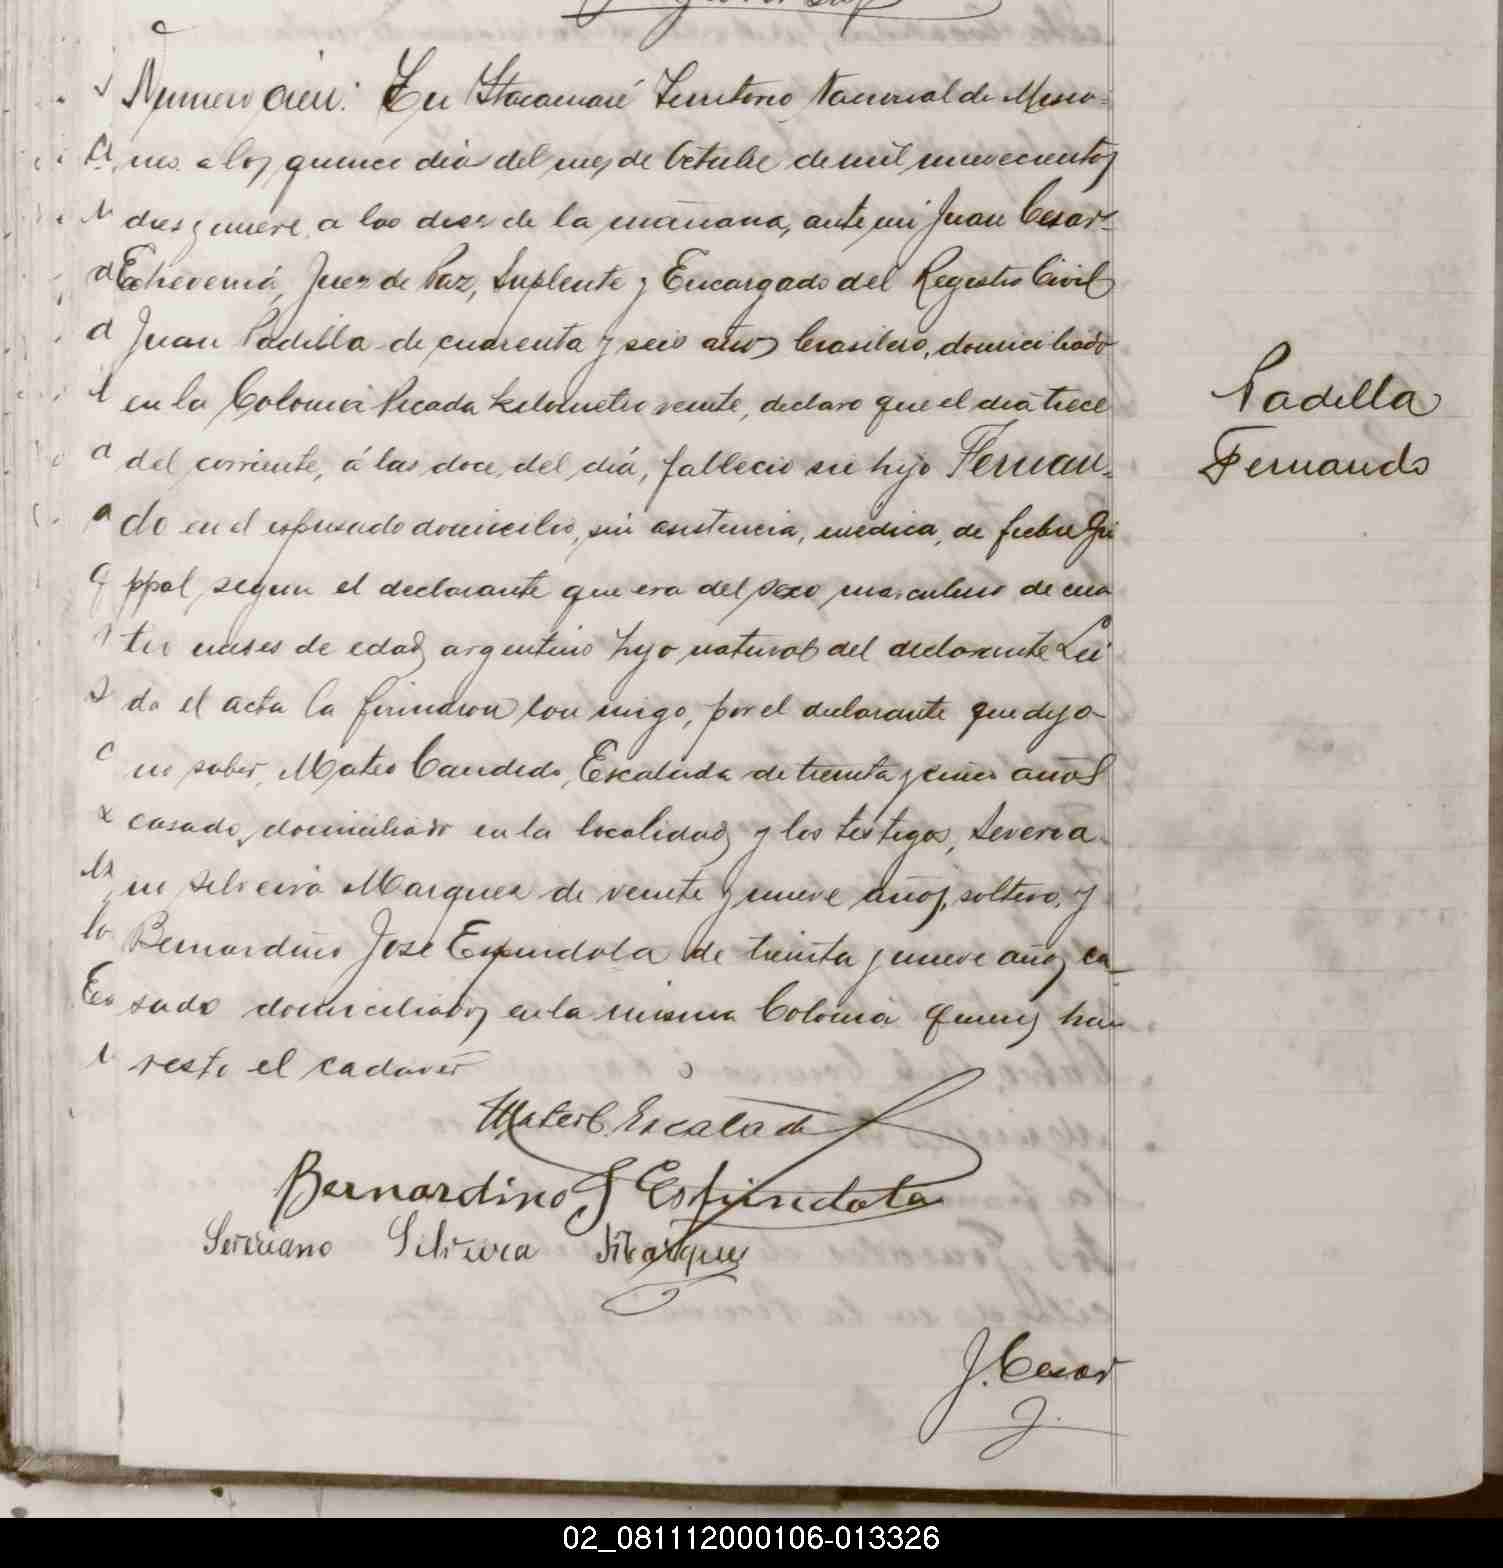 Numero cien: En Itacaruaré Territorio Nacional de Misio-
nes a los quince dias del mes de Octubre de mil novecientos
dies y nueve, a las dies de la mañana, ante mi Juan Cesar-
Echeverria, Juez de Paz, Suplente y Encargado del Registro Civil
Juan Padilla de cuarenta y seis años brasilero, domiciliado
en la Colonia Picada kilometro veinte, declaro que el dia trece
del corriente, á las doce del diá, fallecio su hijo Fernan-
do en el expresado domicilio, sin asistencia, medica, de fiebre Gri
ppal segun el declarante que era del sexo masculino de cua
tro meses de edad, argentino hijo natural del declarante Lei
da el acta la firmaron con migo, por el declarante que dijo
no saber, Mateo Candido Escalada de treinta y cinco años
casado, domiciliado en la localidad y los testigos, Severia
no Silveira Marquez de veinte y nueve años, soltero, y
Bernardino Jose Espindola de treinta y nueve años ca-
sado domiciliados en la misma Colonia quienes han
visto el cadaver
Mateo C. Escalada
Bernardino J Espindola
Severiano Silveira Marques
J. Cesar
Padilla
Fernando
02_081112000106-013326